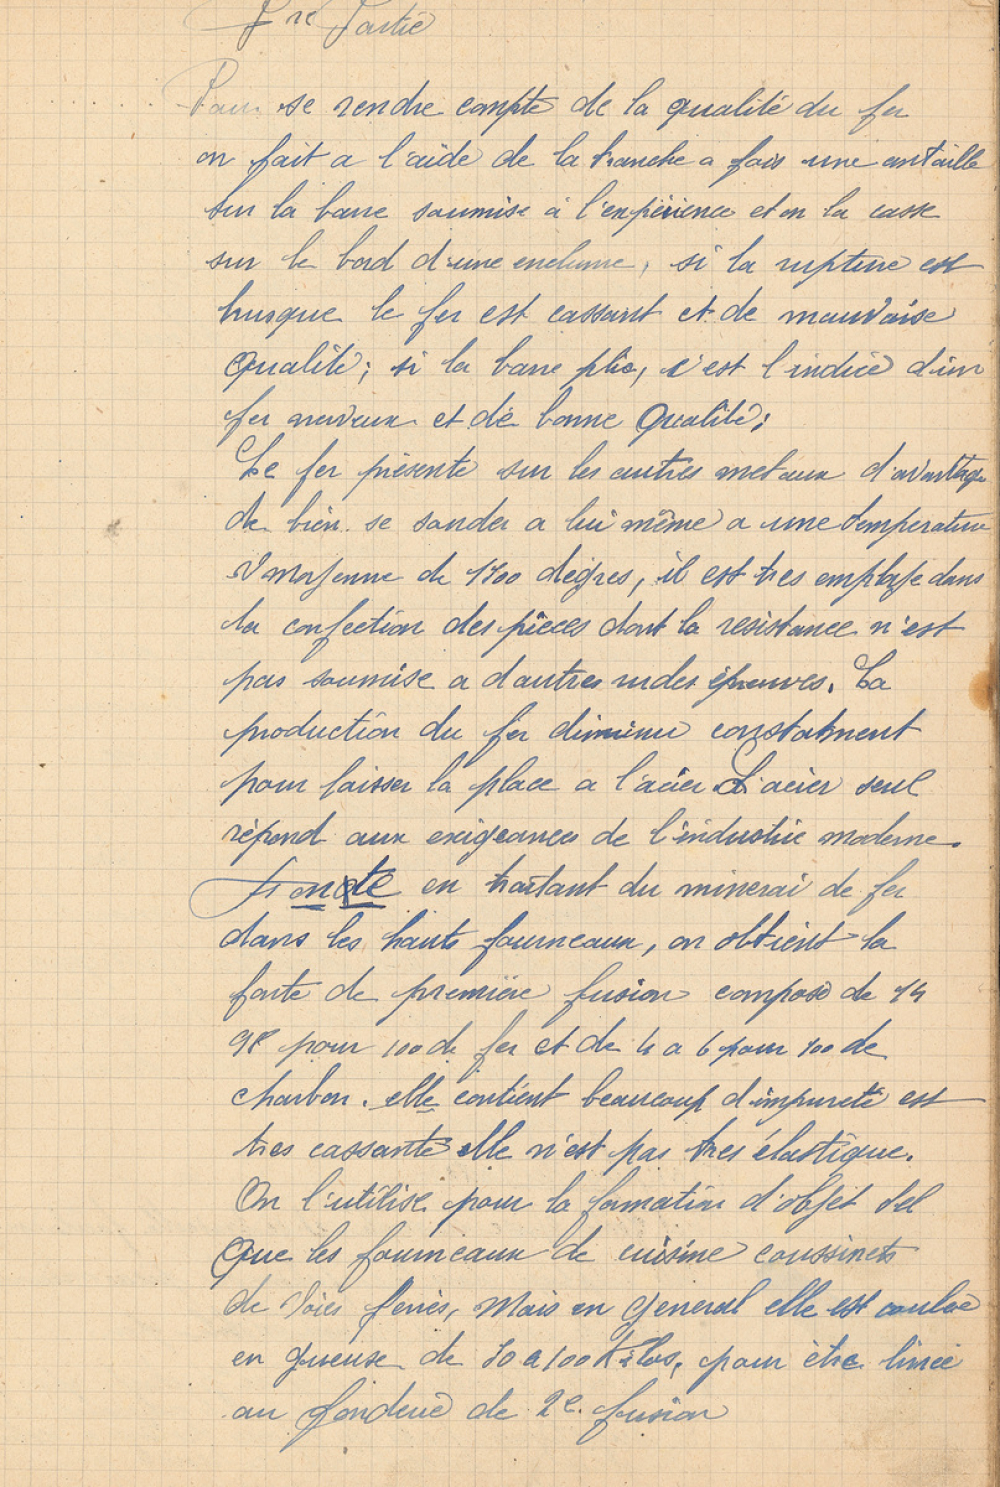 1re Partie
Pour se rendre compte de la qualité du fer
on fait a l'aide de la tranche a fois une entaille
sur la barre soumise à l'expérience et on la casse
sur le bord d'une enclume, si la rupture est
brusque le fer est cassant et de mauvaise
Qualité; si la barre plie, c'est l'indice d'un
fer nerveux et de bonne Qualité;
Le fer présente sur les autres metaux d'avantage
de bien se souder a lui même a une temperature
moyenne de 1500 degres, il est tres employe dans
la confection des pièces dont la resistance n'est
pas soumise a d'autres rudes épreuves. La
production du fer diminue constatment
pour laisser la place a l'acier. L'acier seul
répond aux exigeances de l'industrie moderne.
Fonte en traitant du minerai de fer
dans les hauts fourneaux, on obtient la
fonte de première fusion composé de 94
98 pour 100 de fer et de 4 a 6 pour 100 de
charbon. elle contient beaucoup d'impureté est
tres cassante elle n'est pas tres élastique.
On l'utilise pour la formation d'objet tel
Que les fourneaux de cuisine coussinets
de Voies ferrés, Mais en General elle est coulée
en gueuse de 50 a 100 Kilos, pour être livrée
au fonderie de 2e fusion